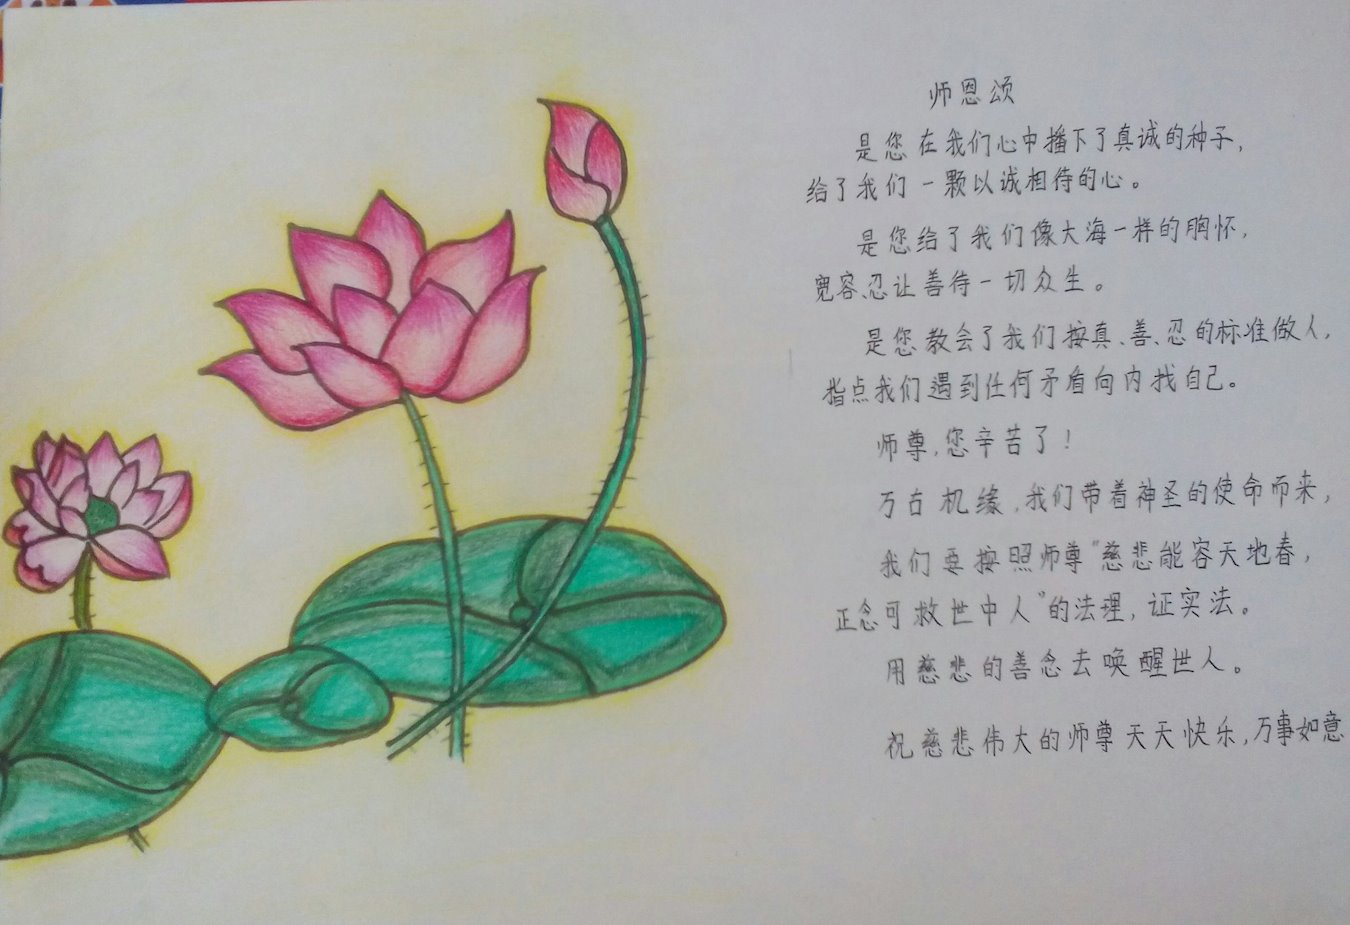 师恩颂
是您在我们心中播下了真诚的种子，
给了我们一颗以诚相待的心。
是您给了我们像大海一样的胸怀，
宽容、忍让善待一切众生。
是您教会了我们按真、善、忍的标准做人，
指点我们遇到任何矛盾向内找自己。
师尊，您辛苦了！
万古机缘，我们带着神圣的使命而来，
我们要按照师尊“慈悲能容天地春，
正念可救世中人”的法理，证实法。
用慈悲的善念去唤醒世人。
祝慈悲伟大的师尊天天快乐，万事如意